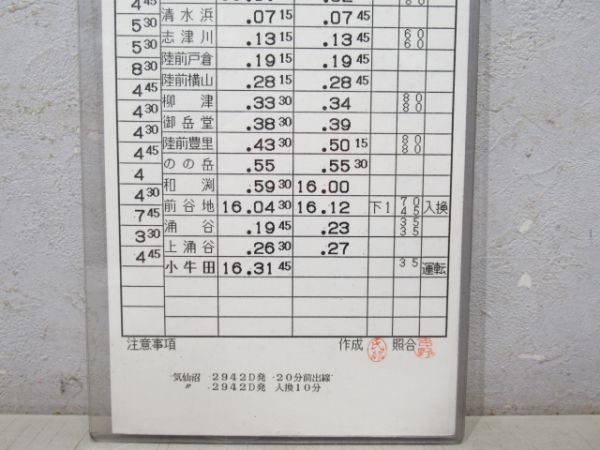 4 45
清水浜 .07 15 .07 45
5 30
志津川 .13 15 .13 45 60 60
5 30
陸前戸倉 .19 15 .19 45
8 30
陸前横山 .28 15 .28 45
4 45
柳津 .33 30 .34 80 80
4 30
御岳堂 .38 30 .39
4 30
陸前豊里 .43 30 .50 15 80 80
4 45
のの岳 .55 .55 30
4
和渕 .59 30 16.00
4 30
前谷地 16.04 30 16.12 下1 70 45 入換
7 45
涌谷 .19 45 .23 35 35
3 30
上涌谷 .26 30 .27
4 45
小牛田 16.31 45 35 運転
注意事項 作成 照合
気仙沼 2942D発 20分前出線
〃 2942D発 入換10分